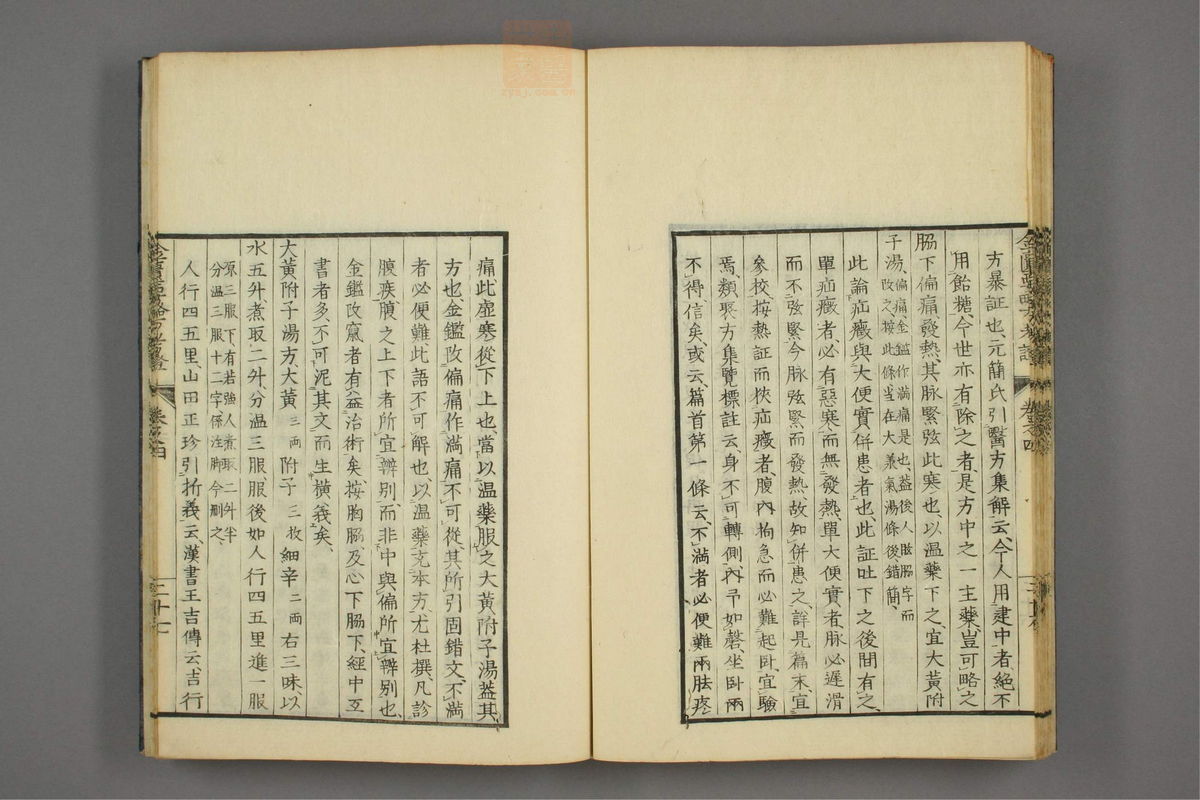 方暴証也、元簡氏引醫方集解云、今人用建中者、絕不
用飴糖、今世亦有除之者、是方中之一主藥、豈可略之
脇下偏痛發熱、其脉緊弦、此寒也、以温藥下之、宜大黃附
子湯、
偏痛、金鑑作滿痛是也、蓋後人
改之、據此條當在大兼氣湯條後錯簡、
此論疝癥與大便實併患者也、此証吐下之後間有之、
單疝癥者、必有惡寒而無發熱、單大便實者、脉必遲滑
而不弦緊、今脉弦緊而發熱、故知併患之、詳見篇末、宜
參校、按熱証而挾疝癥者、腹內拘急而必難起卧、宜驗
焉、類聚方集覽標註云、身不可轉側、內弔如磬、坐卧兩
不得信矣、或云、篇首第一條云、不滿者必便難、兩胠疼
痛、此虛寒從下上也、當以温藥服之、大黃附子湯、蓋其
方也、金鑑改偏痛作滿痛、不可從、其所引固錯文、不滿
者必便難、此語不可解也、以温藥充本方、尤杜撰、凡診
腹疾、腹之上下者、所宜辨別、而非中與偏所宜辨別也、
金鑑改竄者、有益治術矣、按胸脇及心下脇下、經中互
書者多、不可泥其文而生橫義矣、
大黃附子湯方、大黃三兩附子三枚細辛二兩右三味、以
水五升、煮取二升、分温三服、服後如人行四五里、進一服
原三服下、有若強人煮取二升半
分温三服十二字、係注脚、今刪之、
人行四五里、山田正珍引折義云、漢書王吉傳云、吉行
卷之四
三十七